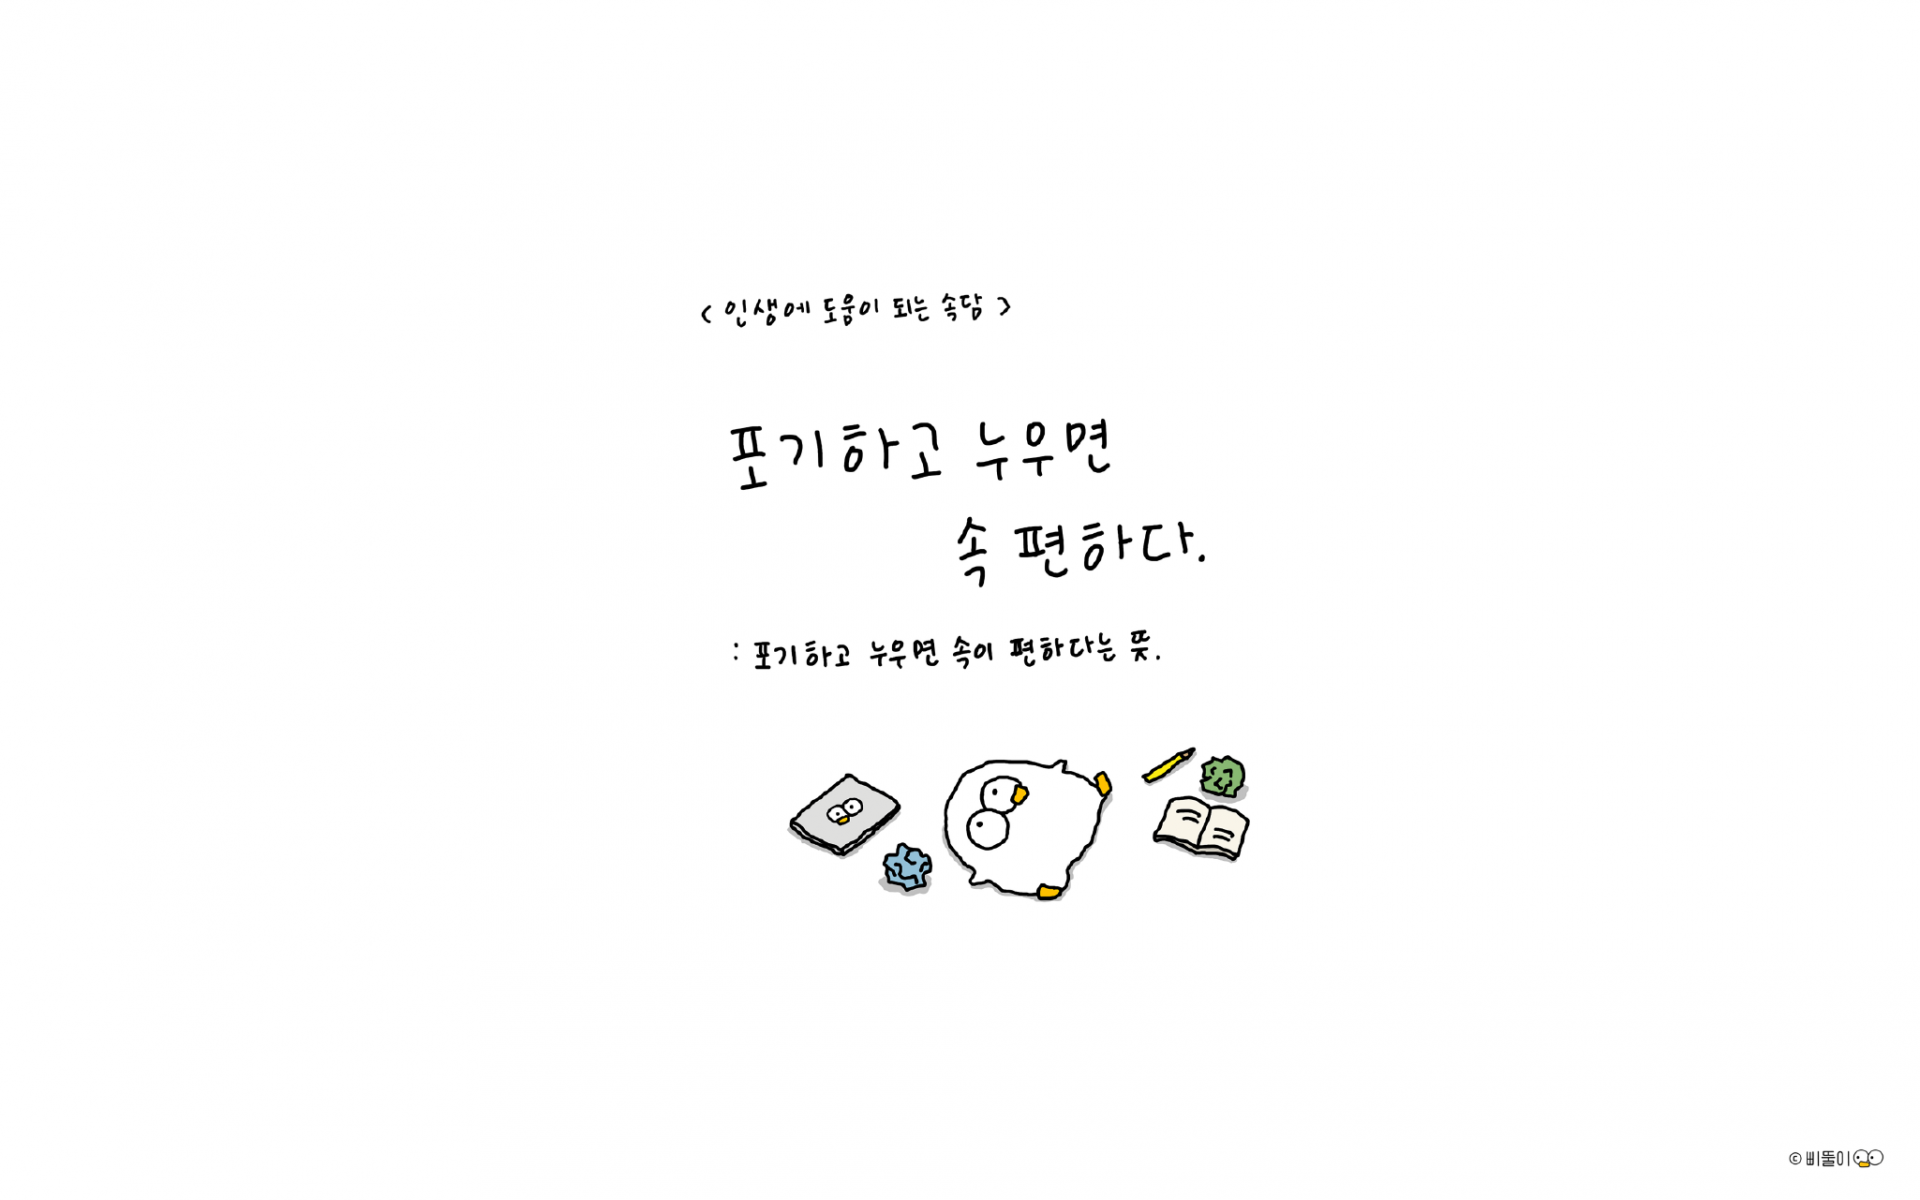 < 인생에 도움이 되는 속담 >
포기하고 누우면
속 편하다.
: 포기하고 누우면 속이 편하다는 뜻.
© 삐둘이